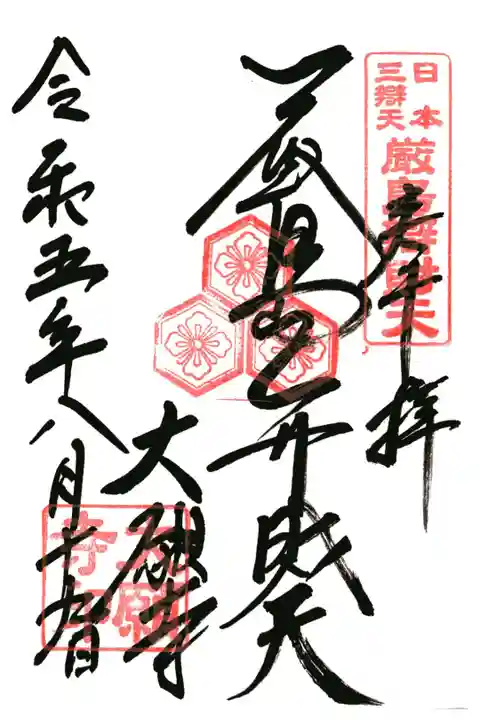 日本
三辯天
厳島辯財天
奉拝
厳島弁財天
大願寺
大願
寺印
令和五年八月廿九日